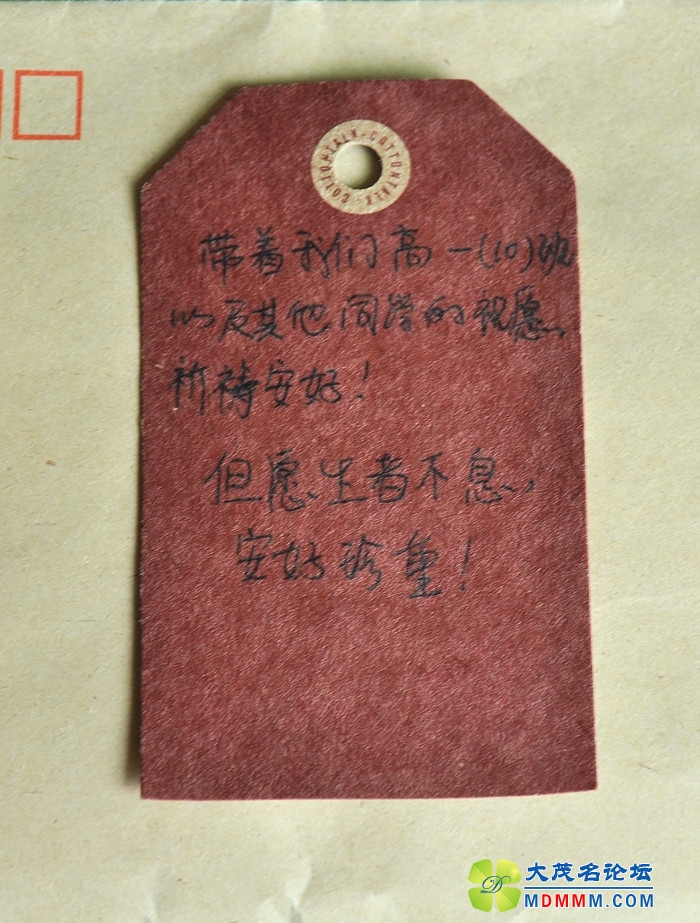 COTTONTALK·COTTONTALK·
带着我们高一(10)班
以及其他同学的祝愿、
祈祷安好!
但愿生者不息、
安好珍重!
大茂名论坛
MDMMM.COM